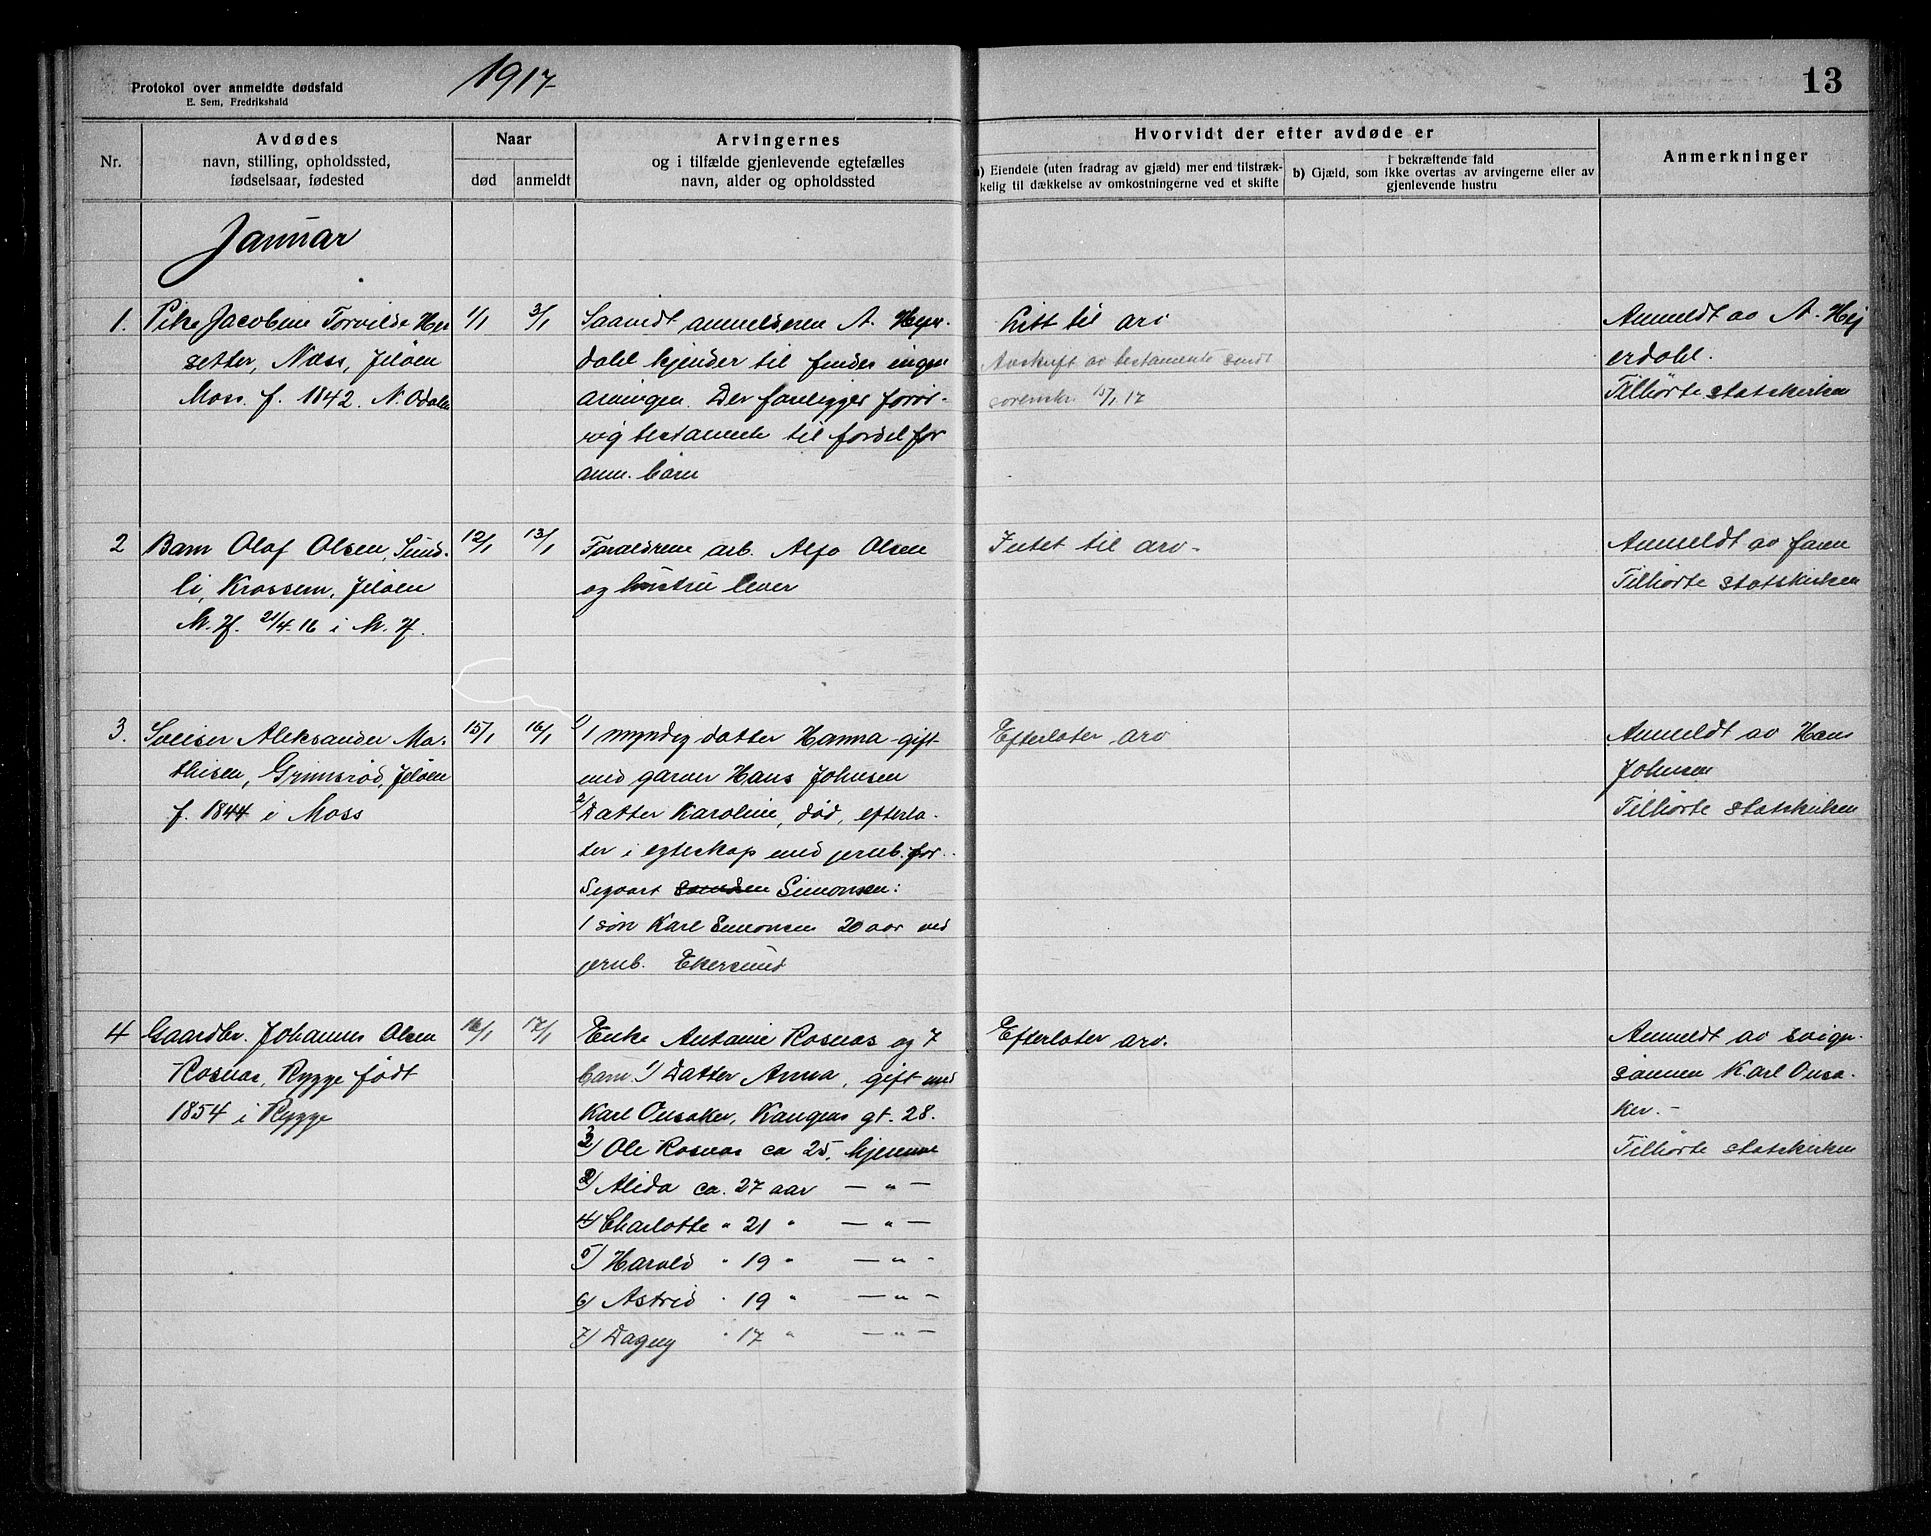 Protokol over anmeldte dødsfald
E. Sem, Fredrikshald
1917
13
Nr.
Avdødes
navn, stilling, opholdssted,
fødselsaar, fødested
Naar
død
anmeldt
Arvingernes
og i tilfælde gjenlevende egtefælles
navn, alder og opholdssted
Hvorvidt der efter avdøde er
a) Eiendele (uten fradrag av gjæld) mer end tilstræk-
kelig til dækkelse av omkostningerne ved et skifte
i bekræftende fald
b) Gjæld, som ikke overtas av arvingerne eller av
gjenlevende hustru
Anmerkninger
Januar
1.
Pike Jacobine Torvilde
setter, Næss, Jeløen
Moss f. 1842. N. Odalen
1/1
3/1
Saavidt anmelderen A. Heyer-
dahl kjender til findes ingen
arvinger. Der foreligger
testamente til fordel for
anm. barn
Litt til arv
Avskrift av testamente sendt
sorenskr. 15/1 17
Anmeldt av A. Hey
erdahl.
Tilhørte statskirken
2
Barn Olaf Olsen, Sund-
li, Krossern, Jeløen
M. H. 21/4-16 i M. H.
12/1
13/1
Forældrene arb. Alfo Olsen
og hustru lever
Intet til arv.
Anmeldt av faren
Tilhørte statskirken
3.
Sveiser Aleksander Ma-
thisen, Grimsrød, Jeløen
f. 1844 i Moss
15/1
16/1
1) 1 myndig datter Hanna gift
med garver Hans Johnsen
2) Datter Karoline, død, efterla-
ter i egteskap med jernb. for-
Sigvart Simonsen:
1 søn Karl Simonsen 20 aar ved
jernb. Ekersund
Efterlater arv
Anmeldt av Hans
Johnsen
Tilhørte statskirken
4
Gaardbr. Johannes Olsen
Rosnæs, Rygge født
1854 i Rygge
16/1
17/1
Enke Antonie Rosnæs og 7
barn 1) Datter Anna, gift med
Karl Onsaker, Kongens gt. 28.
2) Ole Rosnæs ca 25, hjemme
3) Alida ca. 27 aar — " —
4) Charlotte " 21 " — " —
5) Harald " 19 " — " —
6) Astrid " 19 " — " —
7) Dagny " 17 " — " —
Efterlater arv.
Anmeldt av sviger-
sønnen Karl Onsa-
ker.-
Tilhørte statskirken